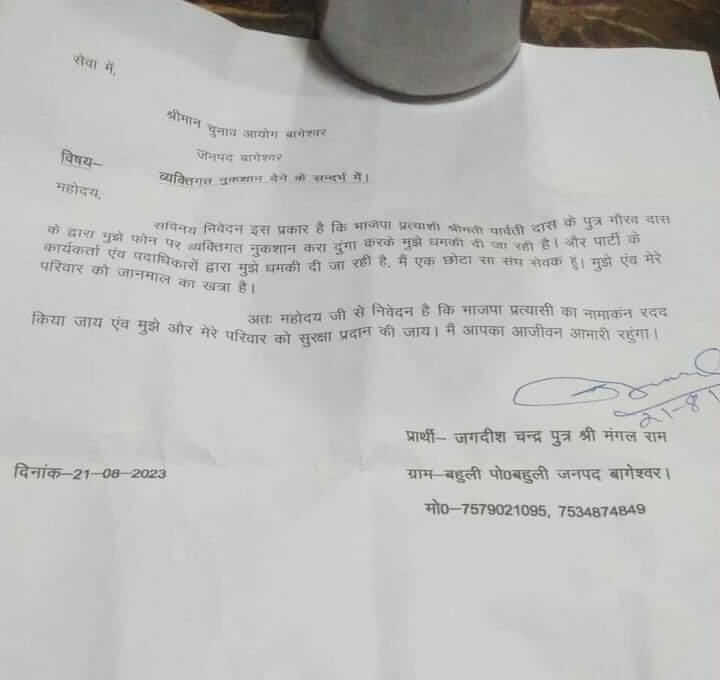 सेवा में,
श्रीमान चुनाव आयोग बागेश्वर
जनपद बागेश्वर
विषय– व्यक्तिगत नुकशान देने के सन्दर्भ में।
महोदय,
सविनय निवेदन इस प्रकार है कि भाजपा प्रत्याशी श्रीमती पार्वती दास के पुत्र गौरव दास
के द्वारा मुझे फोन पर व्यक्तिगत नुकशान करा दुंगा करके मुझे धमकी दी जा रही है। और पार्टी के
कार्यकर्ता एंव पदाधिकारों द्वारा मुझे धमकी दी जा रही है, मैं एक छोटा सा संघ सेवक हूं। मुझे एंव मेरे
परिवार को जानमाल का खत्रा है।
अतः महोदय जी से निवेदन है कि भाजपा प्रत्यासी का नामाकंन रदद
किया जाय एंव मुझे और मेरे परिवार को सुरक्षा प्रदान की जाय। मैं आपका आजीवन आभारी रहुंगा।
21-8
प्रार्थी– जगदीश चन्द्र पुत्र श्री मंगल राम
दिनांक–21-08-2023
ग्राम–बहुली पो0बहुली जनपद बागेश्वर।
मो0–7579021095, 7534874849